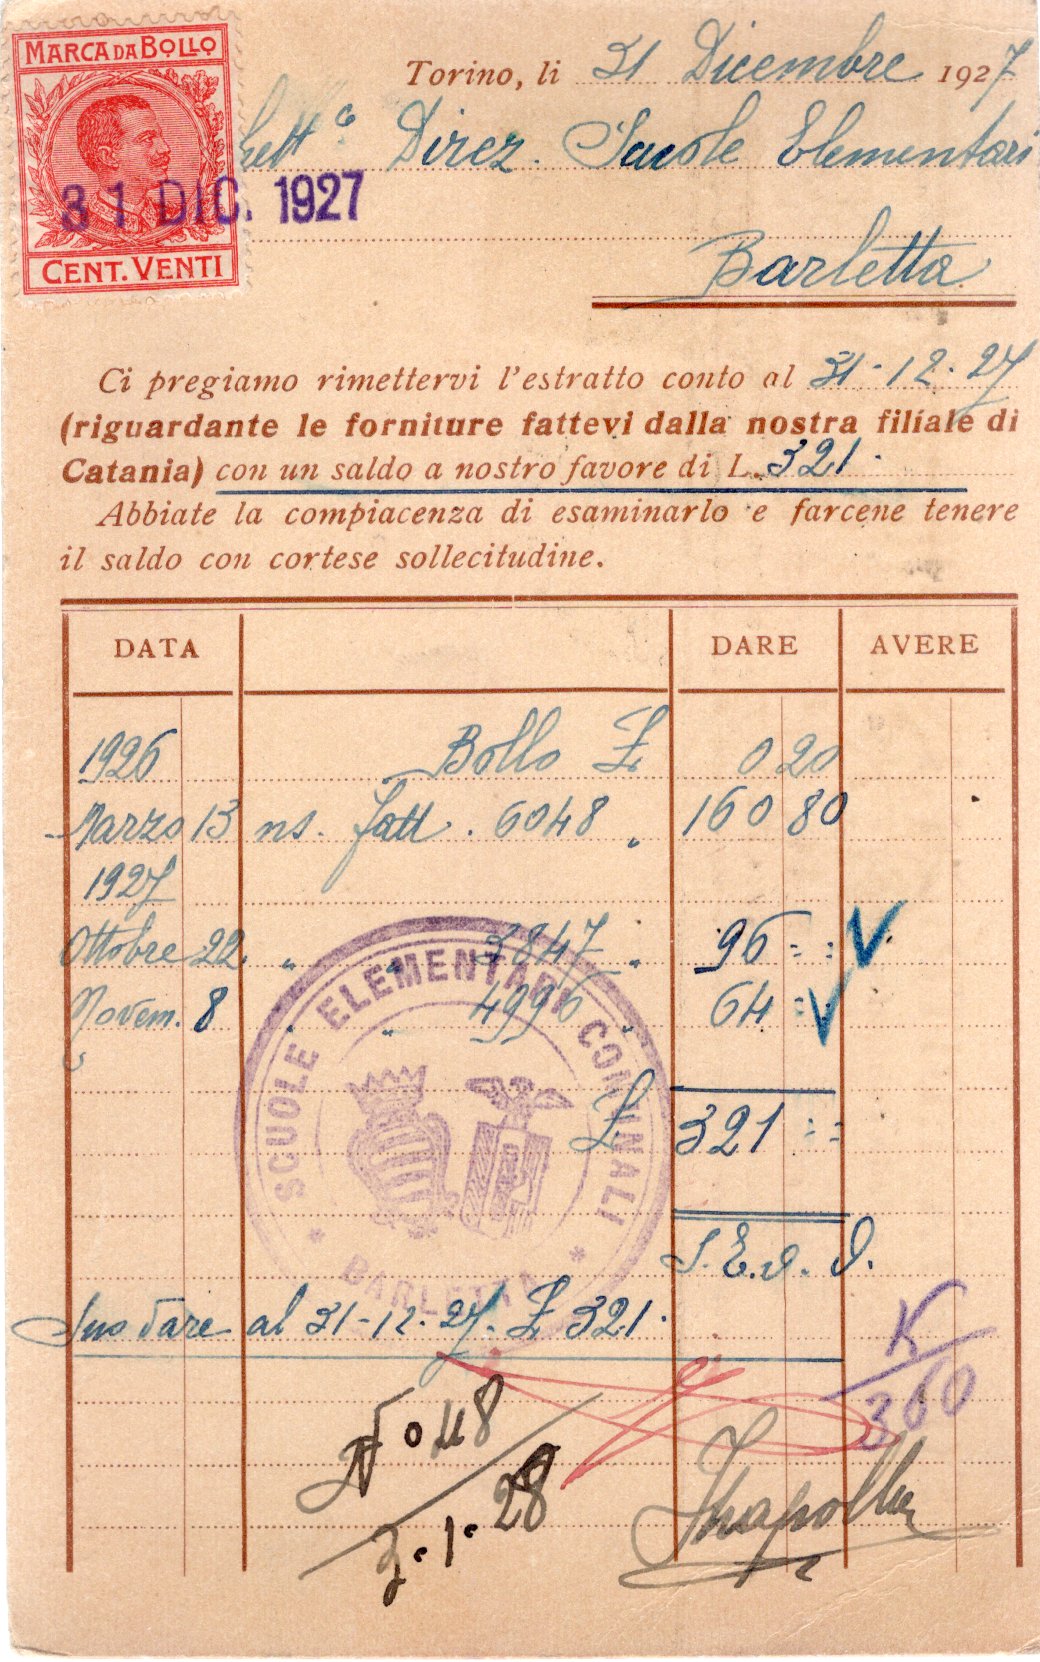 MARCA DA BOLLO
CENT. VENTI
31 DIC. 1927
Torino, li 31 Dicembre 1927
Direz. Scuole Elementari
Barletta
Ci pregiamo rimettervi l'estratto conto al 31-12-27
(riguardante le forniture fattevi dalla nostra filiale di
Catania) con un saldo a nostro favore di L. 321.
Abbiate la compiacenza di esaminarlo e farcene tenere
il saldo con cortese sollecitudine.
DATA DARE AVERE
1926 Bollo £ 0 20
Marzo 13 ns. fatt. 6048 " 160 80
1927
Ottobre 22. " " 3847 " 96 = : V
Novem. 8 " " 4996 " 64 = V
£ 321 : =
S. E. & O.
Suo dare al 31-12-27. £ 321.
SCUOLE ELEMENTARI COMUNALI
* BARLETTA *
K/360
No 48
2.1.28